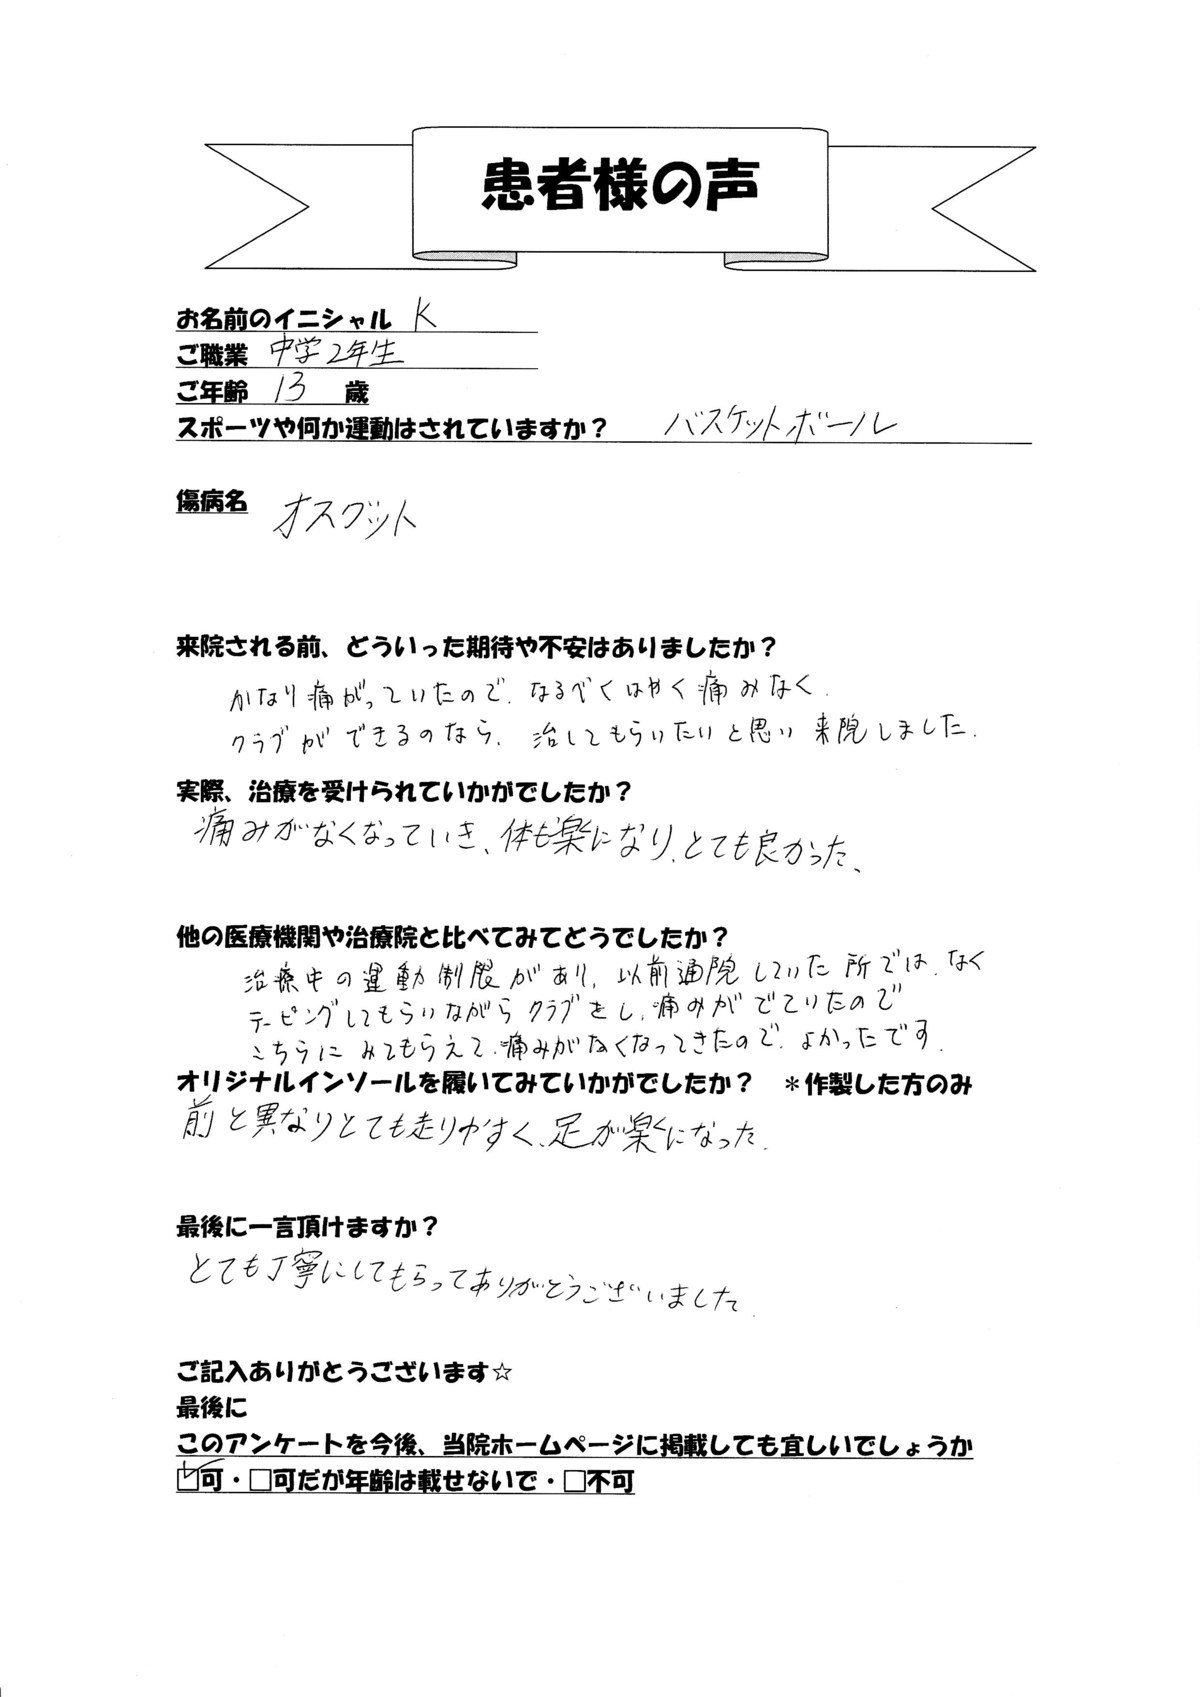 患者様の声
お名前のイニシャル K
ご職業 中学2年生
ご年齢 13 歳
スポーツや何か運動はされていますか? バスケットボール
傷病名 オスグット
来院される前、どういった期待や不安はありましたか?
かなり痛がっていたので、なるべくはやく痛みなく、
クラブができるのなら、治してもらいたいと思い来院しました。
実際、治療を受けられていかがでしたか?
痛みがなくなっていき、体も楽になり、とても良かった、
他の医療機関や治療院と比べてみてどうでしたか?
治療中の運動制限があり、以前通院していた所では、なく
テーピングしてもらいながらクラブをし、痛みがでていたので
こちらに みてもらえて、痛みがなくなってきたので、よかったです。
オリジナルインソールを履いてみていかがでしたか? *作製した方のみ
前と異なりとても走りやすく、足が楽になった。
最後に一言頂けますか?
とても丁寧にしてもらってありがとうございました。
ご記入ありがとうございます☆
最後に
このアンケートを今後、当院ホームページに掲載しても宜しいでしょうか
☑可・□可だが年齢は載せないで・□不可